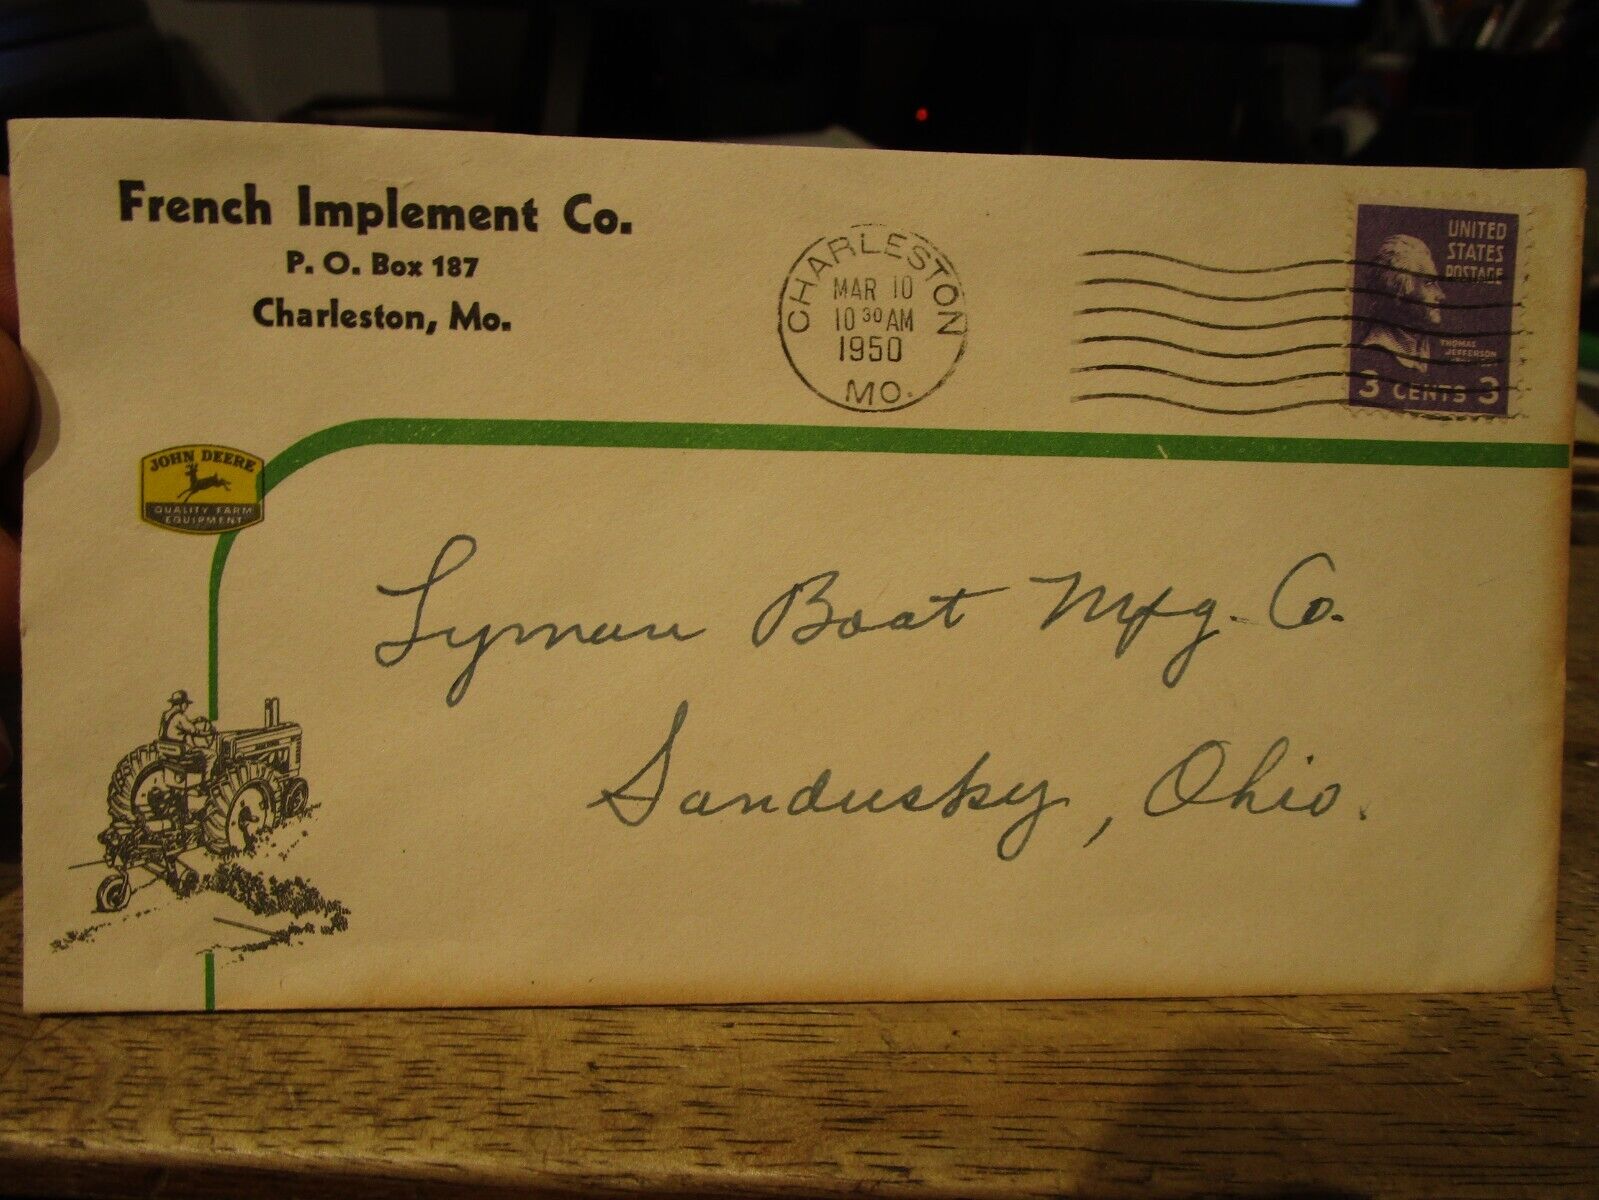 French Implement Co.
P. O. Box 187
Charleston, Mo.
CHARLESTON
MAR 10
10 30 AM
1950
MO.
UNITED
STATES
POSTAGE
THOMAS
JEFFERSON
3 CENTS 3
JOHN DEERE
QUALITY FARM
EQUIPMENT
Lyman Boat Mfg. Co.
Sandusky, Ohio.